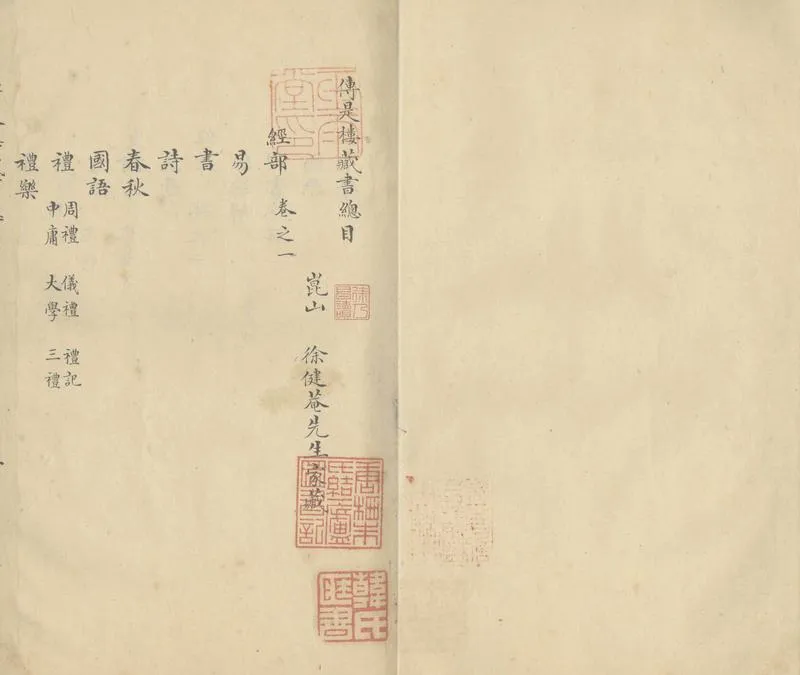 傳是樓藏書總目
崑山 徐健菴先生家藏
經部 卷之一
易
書
詩
春秋
國語
禮 周禮 儀禮 禮記
中庸 大學 三禮
禮樂
韓氏